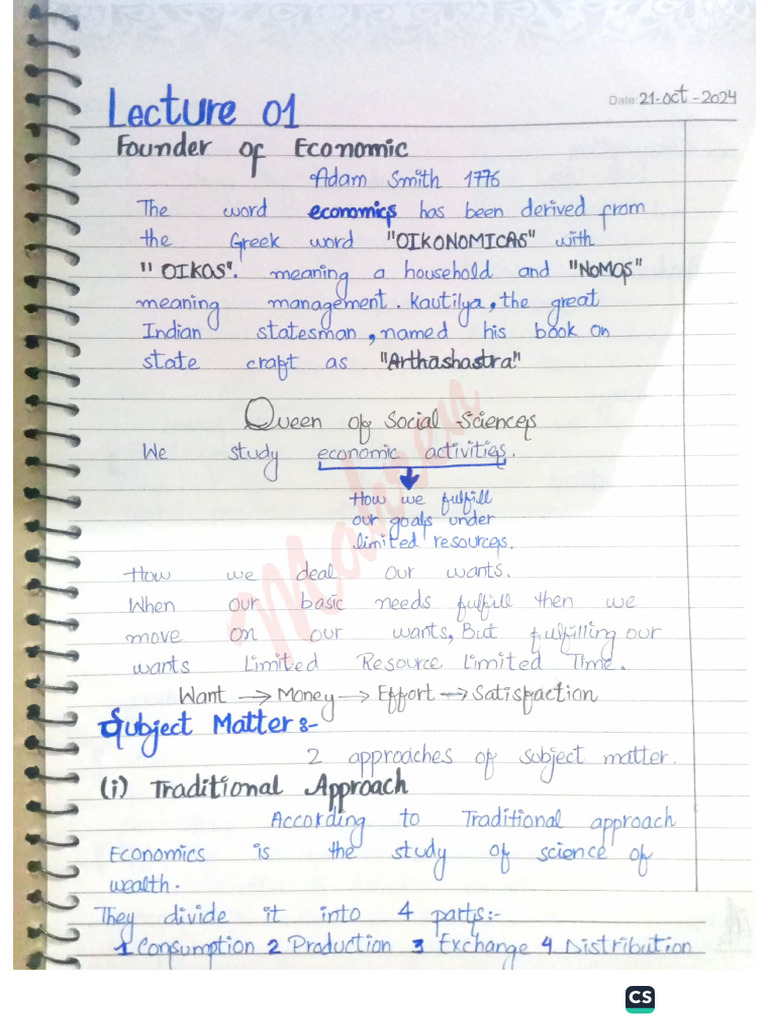 Lecture 01
Date: 21-oct-2024
Founder of Economic
Adam Smith 1776
The word economics has been derived from
the Greek word "OIKONOMICAS" with
"OIKOS". meaning a household and "NOMOS"
meaning management. Kautilya, the great
Indian statesman, named his book on
state craft as "Arthashastra"
Queen of Social Sciences
We study economic activities.
How we fulfill
our goals under
limited resources.
How we deal our wants.
When our basic needs fulfill then we
move on our wants, But fulfilling our
wants Limited Resource Limited Time.
Want → Money → Effort → Satisfaction
Subject Matter :-
2 approaches of subject matter.
(i) Traditional Approach
According to Traditional approach
Economics is the study of science of
wealth.
They divide it into 4 parts:-
1 Consumption 2 Production 3 Exchange 4 Distribution
Mahseen
CS